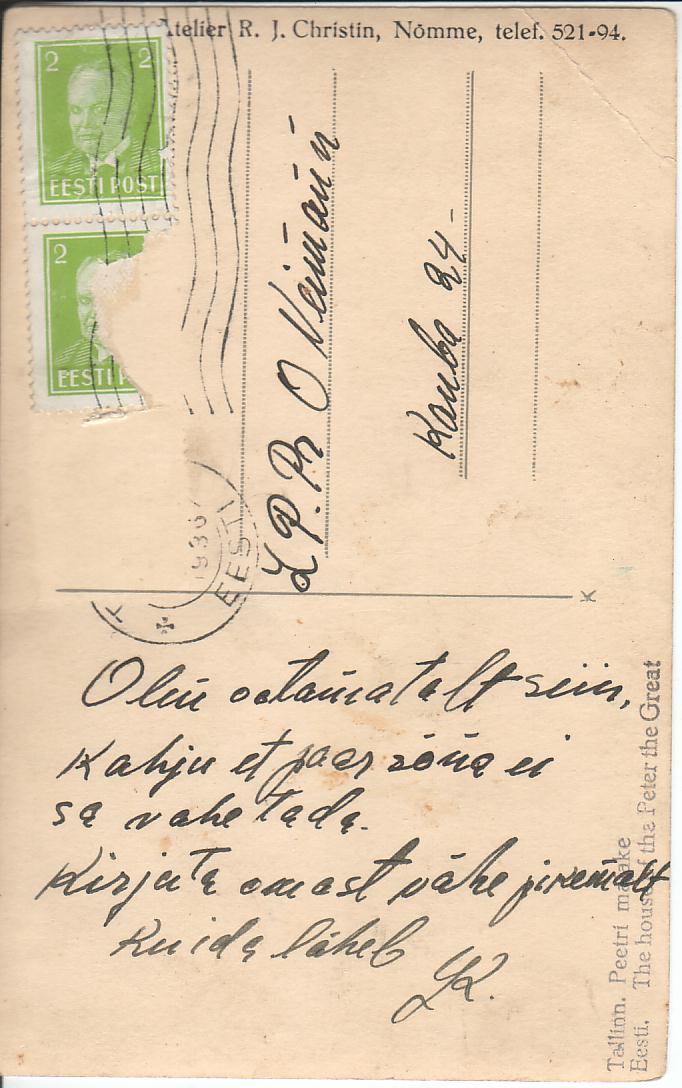 Atelier R. J. Christin, Nõmme, telef. 521-94.
2 2
EESTI POST
2
EESTI P
1936
EESTI
L. P. Pr O Neimann
Kauba 24-
Olen ootamatult siin,
Kahju et paar sõna ei
sa vahetada.
Kirjuta omast vähe pikemalt
Kuida läheb
K.
Tallinn. Peetri majake
Eesti. The house of the Peter the Great